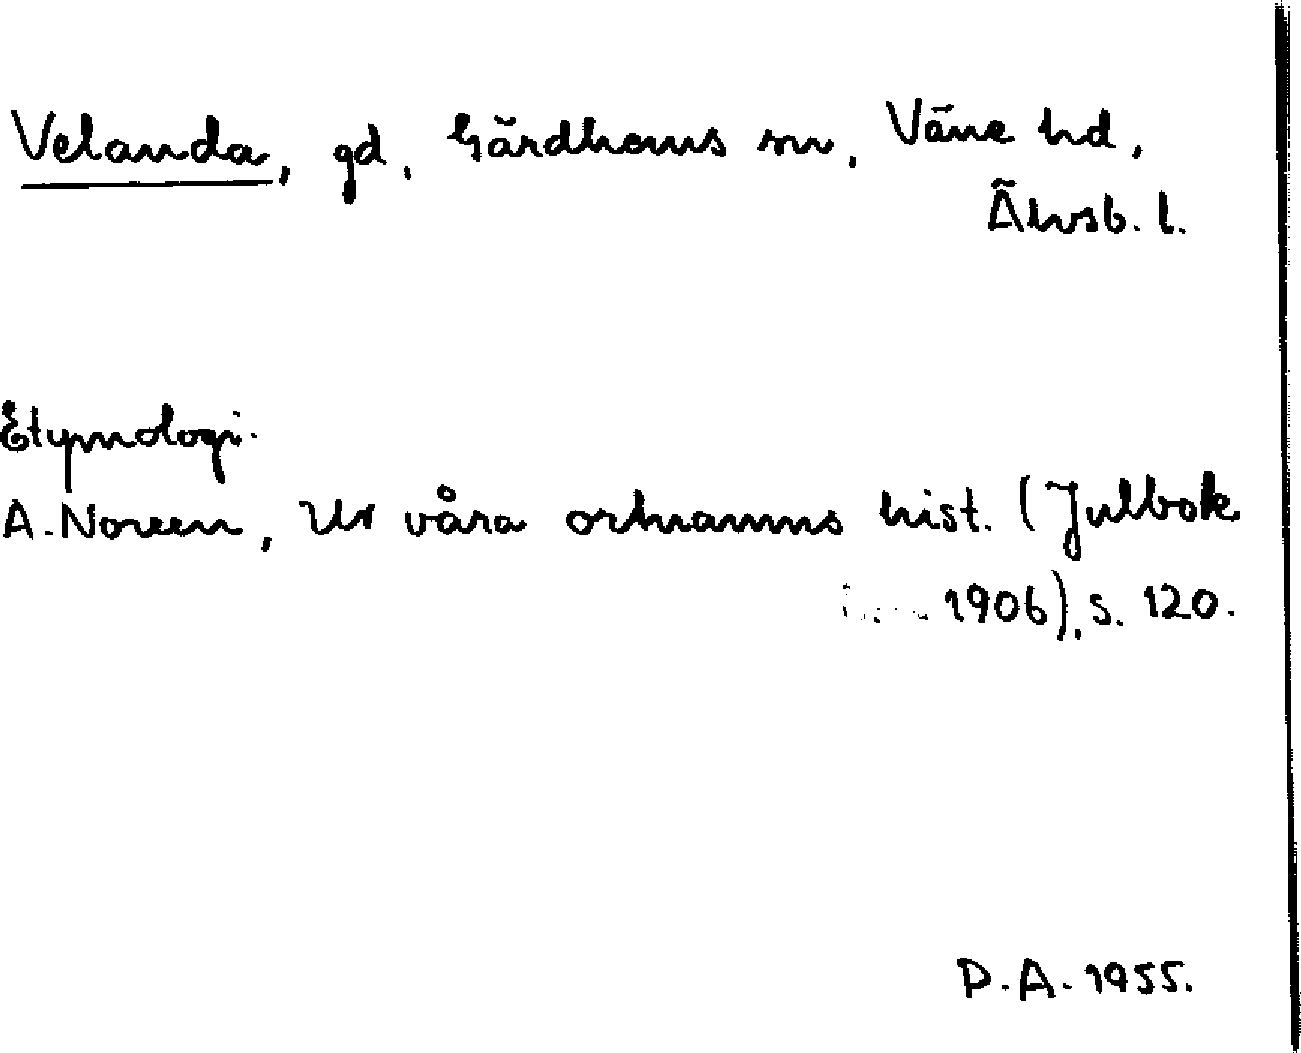 Velanda, gd, Gärdhems sn, Väne hd,
Älvsb. l.
Etymologi.
A. Noreen, Ur våra ortnamns hist. (Julbok
1906), s. 120.
D.A. 1955.